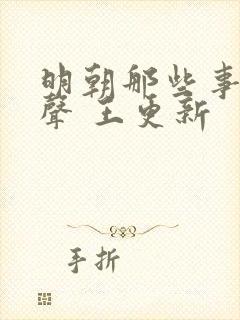 明朝那些事
聲 王更新
手折